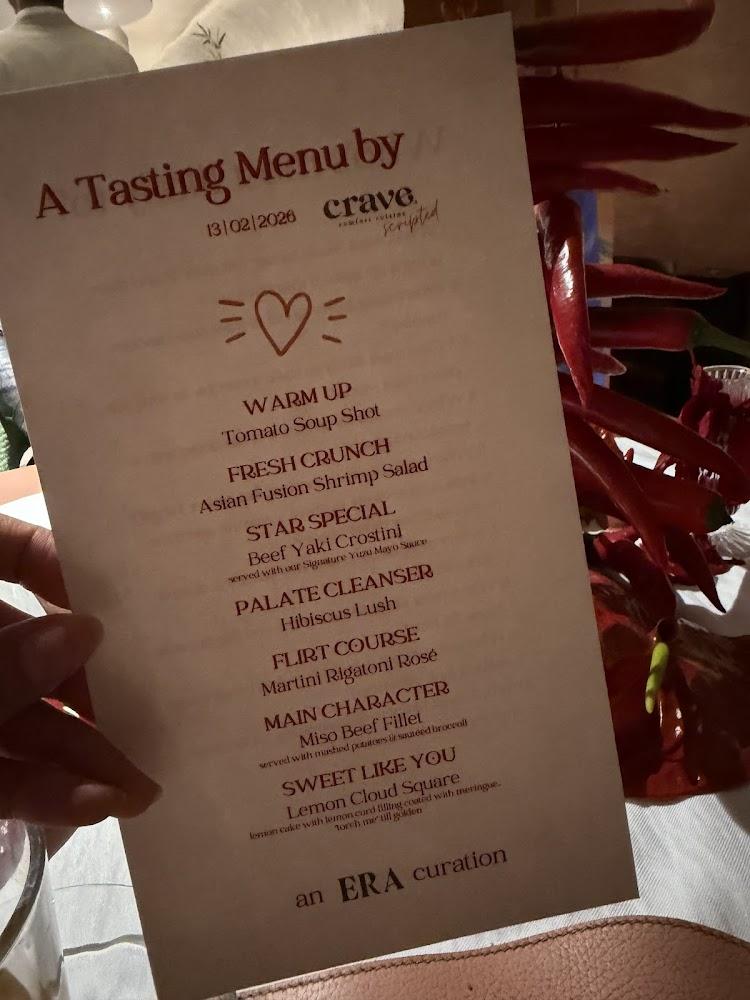 A Tasting Menu by
13|02|2026
crave.
comfort cuisine
scripted
WARM UP
Tomato Soup Shot
FRESH CRUNCH
Asian Fusion Shrimp Salad
STAR SPECIAL
Beef Yaki Crostini
served with our Signature Yuzu Mayo Sauce
PALATE CLEANSER
Hibiscus Lush
FLIRT COURSE
Martini Rigatoni Rosé
MAIN CHARACTER
Miso Beef Fillet
served with mashed potatoes & sautéed broccoli
SWEET LIKE YOU
Lemon Cloud Square
lemon cake with lemon curd filling coated with meringue.
'torch me' till golden
an ERA curation